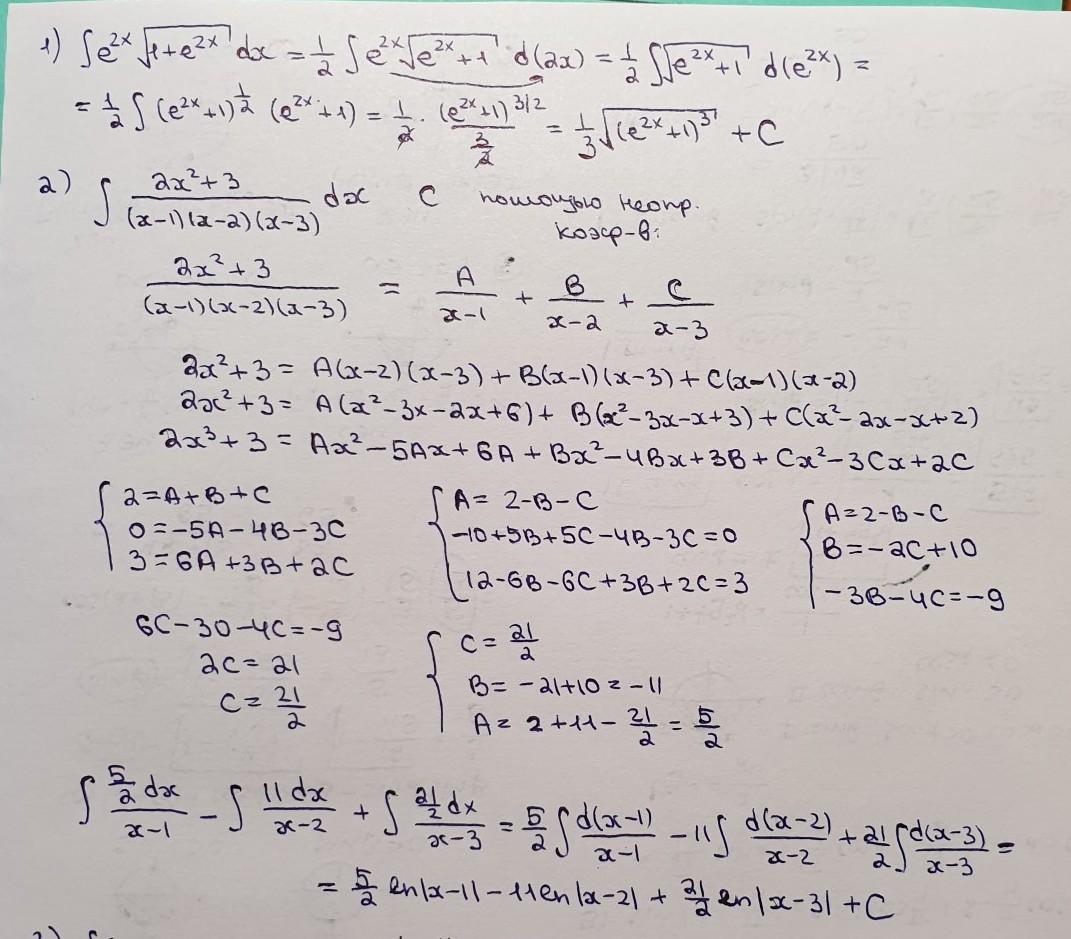 1) ∫e^{2x} √(1+e^{2x}) dx = 1/2 ∫ e^{2x} √(e^{2x}+1) d(2x) = 1/2 ∫√(e^{2x}+1) d(e^{2x}) =
= 1/2 ∫ (e^{2x}+1)^{1/2} (e^{2x}+1) = 1/2 · (e^{2x}+1)^{3/2} / (3/2) = 1/3 √((e^{2x}+1)^3) + C
2) ∫ (2x²+3)/((x-1)(x-2)(x-3)) dx С помощью неопр.
коэф-в:
(2x²+3)/((x-1)(x-2)(x-3)) = A/(x-1) + B/(x-2) + C/(x-3)
2x²+3 = A(x-2)(x-3) + B(x-1)(x-3) + C(x-1)(x-2)
2x²+3 = A(x²-3x-2x+6) + B(x²-3x-x+3) + C(x²-2x-x+2)
2x³+3 = Ax²-5Ax+6A+Bx²-4Bx+3B+Cx²-3Cx+2C
{ 2=A+B+C { A= 2-B-C { A=2-B-C
0=-5A-4B-3C -10+5B+5C-4B-3C=0 B=-2C+10
3=6A+3B+2C 12-6B-6C+3B+2C=3 -3B-4C=-9
6C-30-4C=-9 { C= 21/2
2C= 21 B= -21+10=-11
C= 21/2 A= 2+11- 21/2 = 5/2
∫ (5/2 dx)/(x-1) - ∫ (11 dx)/(x-2) + ∫ (21/2 dx)/(x-3) = 5/2 ∫ d(x-1)/(x-1) - 11 ∫ d(x-2)/(x-2) + 21/2 ∫ d(x-3)/(x-3) =
= 5/2 ln|x-1| - 11 ln|x-2| + 21/2 ln|x-3| + C